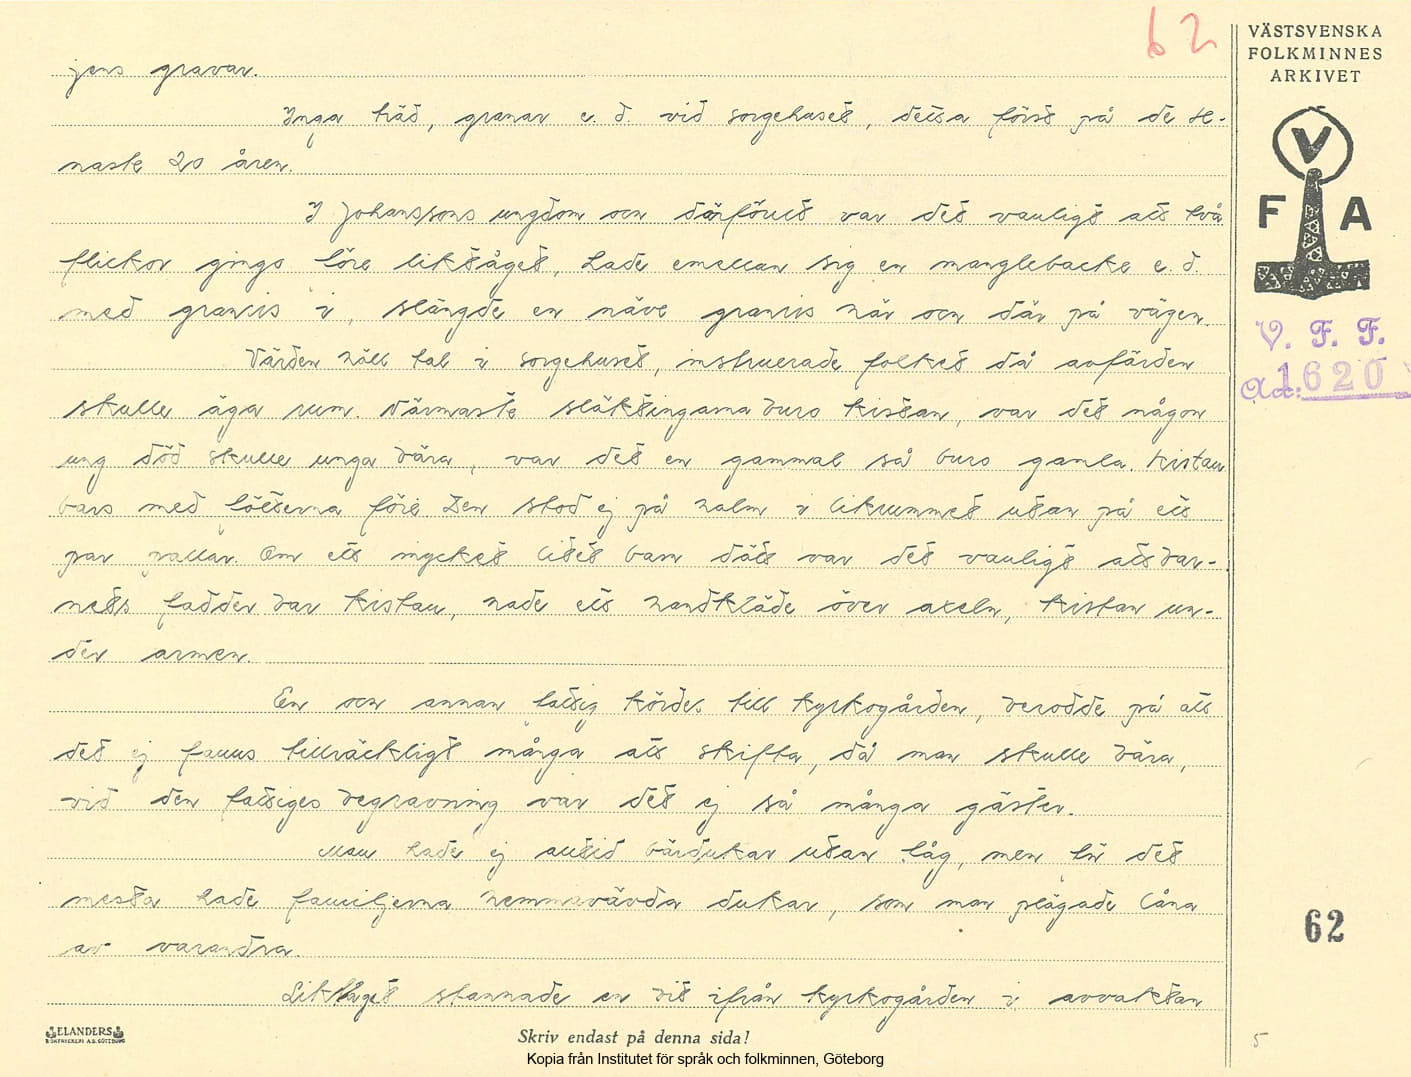 62
VÄSTSVENSKA
FOLKMINNES
ARKIVET
V
F A
V. F. F.
Acc: 1620
jens gravar.
Inga träd, granar e. d. vid sorgehuset, detta först på de se-
naste 20 åren.
I Johanssons ungdom och därförut var det vanligt att två
flickor gingo före liktåget, hade emellan sig en manglebacke e. d.
med granris i, slängde en näve granris här och där på vägen.
Värden höll tal i sorgehuset, instruerade folket då avfärden
skulle äga rum. Närmaste släktingarna buro kistan, var det någon
ung död skulle unga bära, var det en gammal så buro gamla. Kistan
bars med fötterna före. Den stod ej på halm i likrummet utan på ett
par pallar. Om ett mycket litet barn dött var det vanligt att bar-
nets fadder bar kistan, hade ett handkläde över axeln, kistan un-
der armen.
En och annan fattig kördes till kyrkogården, berodde på att
det ej fanns tillräckligt många att skifta, då man skulle bära,
vid den fattiges begravning var det ej så många gäster.
Man hade ej alltid bärdukar utan tåg, men för det
mesta hade familjerna hemmavävda dukar, som man plägade låna
av varandra.
Liktåget stannade en bit ifrån kyrkogården i avvaktan
62
5
ELANDERS
BOKTRYCKERI A.B. GÖTEBORG
Skriv endast på denna sida!
Kopia från Institutet för språk och folkminnen, Göteborg